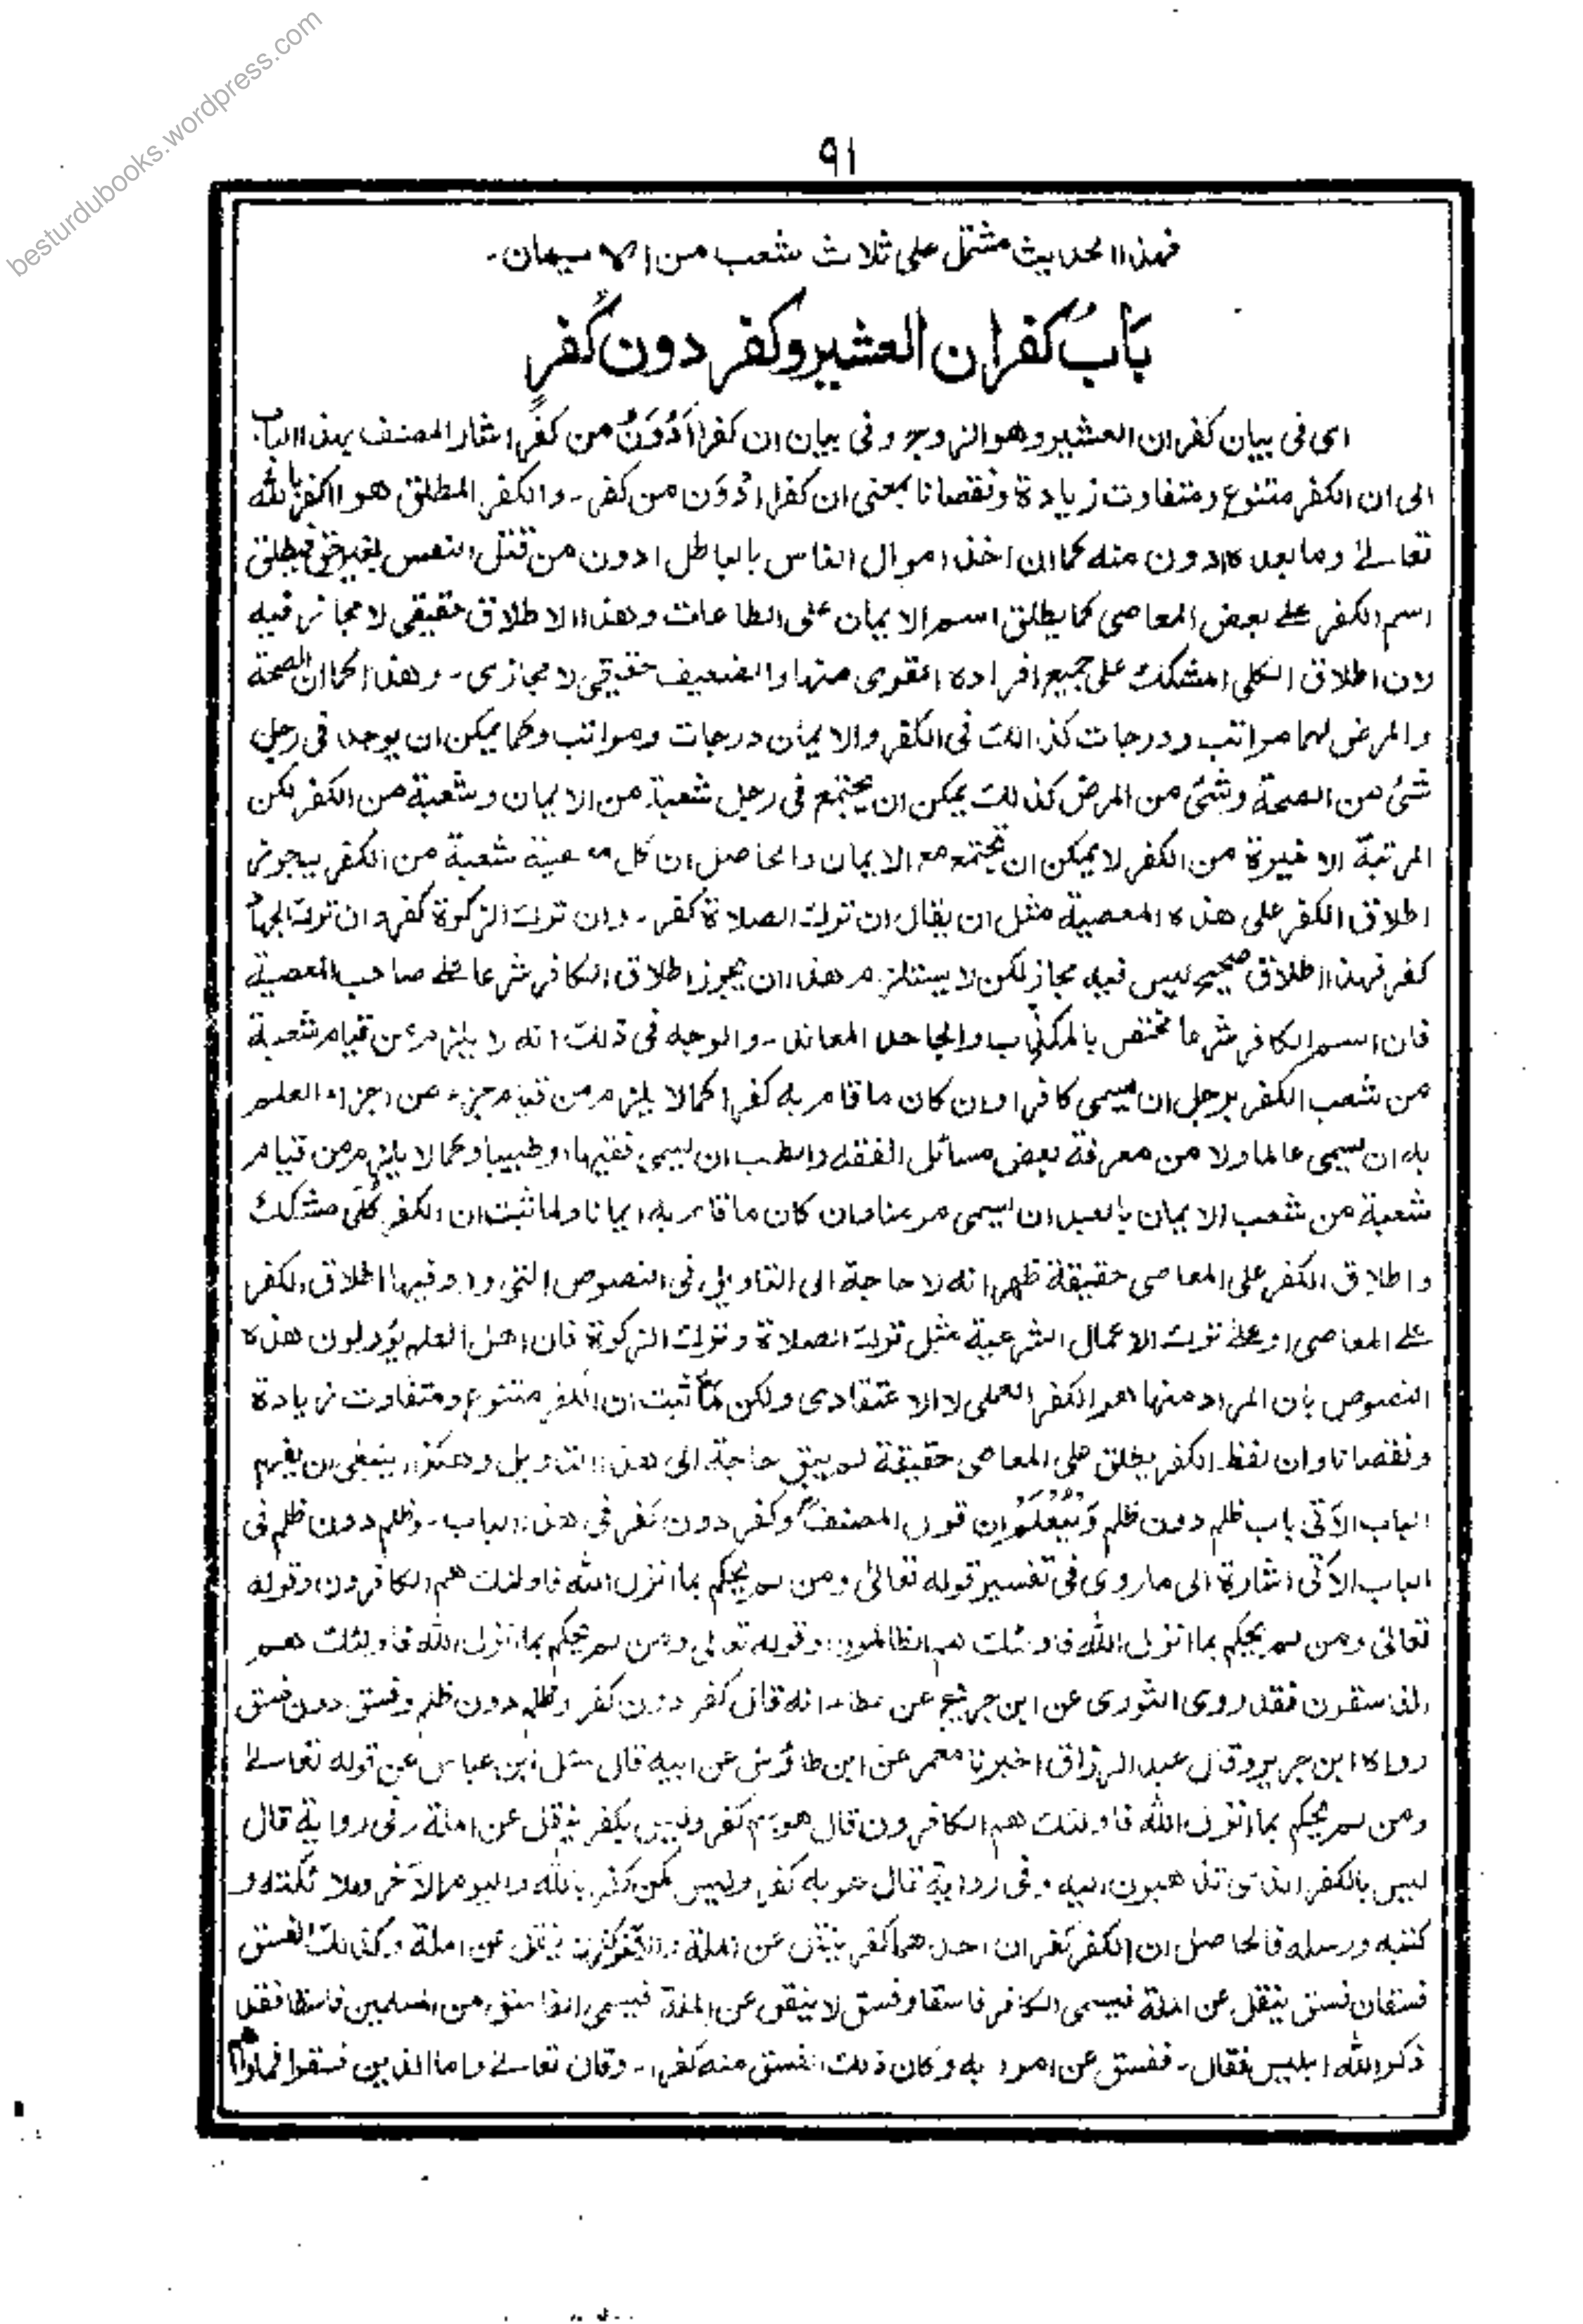 besturdubooks.wordpress.com
٩١
فهذا الحديث مشتمل على ثلاث شعب من الايمان۔
بَابُ كفران العشير وكفر دون كُفرٍ
اى فى بيان كفران العشير وهو الزوج وفى بيان ان كفرًا اَدْوَنُ من كفرٍ اشار المصنف بهذا الباب
الى ان الكفر متنوع ومتفاوت زيادة ونقصانا بمعنى ان كفرا ادْوَن من كفر۔ والكفر المطلق هو الكفر بالله
تعالے وما بعده ادون منه كما ان اخذ اموال الناس بالباطل ادون من قتل النفس بغير حق فيطلق
اسم الكفر علے بعض المعاصى كما يطلق اسم الايمان على الطاعات وهذا الاطلاق حقيقى لا مجاز فيه
لان اطلاق الكلى المشكك على جميع افراده القوى منها والضعيف حقيقى لا مجازى۔ وهذا كما ان الصحة
والمرض لهما مراتب ودرجات كذالك فى الكفر والايمان درجات ومراتب وكما يمكن ان يوجد فى رجل
شئ من الصحة وشئ من المرض كذلك يمكن ان يجتمع فى رجل شعبة من الايمان وشعبة من الكفر لكن
المرتبة الاخيرة من الكفر لا يمكن ان تجتمع مع الايمان والحاصل ان كل معصية شعبة من الكفر يجوز
اطلاق الكفر على هذه المعصية مثل ان يقال ان ترك الصلاة كفر۔ وان ترك الزكوة كفر وان ترك الجهاد
كفر فهذا اطلاق صحيح ليس فيه مجاز لكن لا يستلزم هذا ان يجوز اطلاق الكافر شرعا علے صاحب المعصية
فان اسم الكافر شرعا مختص بالمكذّب والجاحد المعاند۔ والوجه فى ذلك انه لا يلزم من قيام شعبة
من شعب الكفر برجل ان يسمى كافرا وان كان ما قام به كفرا كما لا يلزم من قيام جزء من اجزاء العلم
به ان يسمى عالما ولا من معرفة بعض مسائل الفقه والطب ان يسمى فقيها او طبيبا وكما لا يلزم من قيام
شعبة من شعب الايمان بالعبد ان يسمى مومنا وان كان ما قام به ايمانا ولما ثبت ان الكفر كُلّى مشكك
واطلاق الكفر على المعاصى حقيقة ظهر انه لا حاجة الى التاويل فى النصوص التى ورد فيها اطلاق الكفر
علے المعاصى او علے ترك الاعمال الشرعية مثل ترك الصلاة وترك الزكوة فان اهل العلم يؤولون هذه
النصوص بان المراد منها هو الكفر العملى لا الاعتقادى ولكن لمّا ثبت ان الكفر متنوع ومتفاوت زيادة
ونقصانا وان لفظ الكفر يطلق على المعاصى حقيقة لم يبق حاجة الى هذا التاويل وهكذا ينبغى ان يفهم
الباب الآتى باب ظلم دون ظلم وَلْيُعْلَمْ ان قول المصنف وكفر دون كفر فى هذا الباب۔ وظلم دون ظلم فى
الباب الآتى اشارة الى ما روى فى تفسير قوله تعالىٰ ومن لم يحكم بما انزل الله فاولئك هم الكافرون وقوله
تعالىٰ ومن لم يحكم بما انزل الله فاولئك هم الظالمون وقوله تعالى ومن لم يحكم بما انزل الله فاولئك هم
الفاسقون فقد روى الثورى عن ابن جريج عن عطاء انه قال كفر دون كفر وظلم دون ظلم وفسق دون فسق
رواه ابن جرير وقال عبد الرزاق اخبرنا معمر عن ابن طاؤس عن ابيه قال سئل ابن عباس عن قوله تعالے
ومن لم يحكم بما انزل الله فاولئك هم الكافرون قال هو بهم كفر وليس بكفر ينقل عن الملة وفى رواية قال
ليس بالكفر الذى تذهبون اليه وفى رواية قال هو به كفر وليس كمن كفر بالله واليوم الآخر وملائكته و
كتبه ورسله فالحاصل ان الكفر كفران احدهما كفر ينقل عن الملة والآخر كفر لا ينقل عن الملة وكذالك الفسق
فسقان فسق ينقل عن الملة فيسمى الكافر فاسقا وفسق لا ينقل عن الملة فيسمى الفاسق من المسلمين فاسقا فقد
ذكر الله ابليس فقال۔ ففسق عن امر ربه وكان ذلك الفسق منه كفرا۔ وقال تعالے واما الذين فسقوا فماواهم